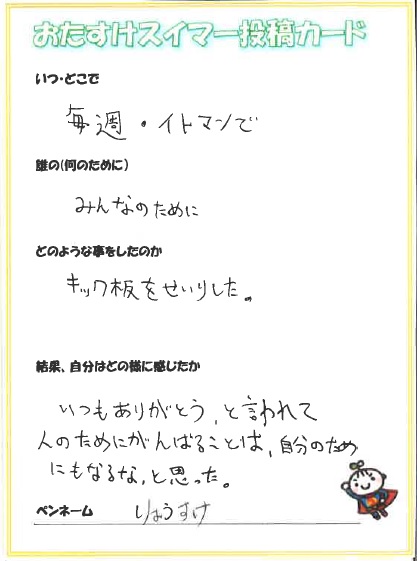 おたすけスイマー投稿カード
いつ・どこで
毎週・イトマンで
誰の(何のために)
みんなのために
どのような事をしたのか
キック板をせいりした。
結果、自分はどの様に感じたか
いつもありがとう、と言われて
人のためにがんばることは、自分のため
にもなるな、と思った。
ペンネーム りょうすけ